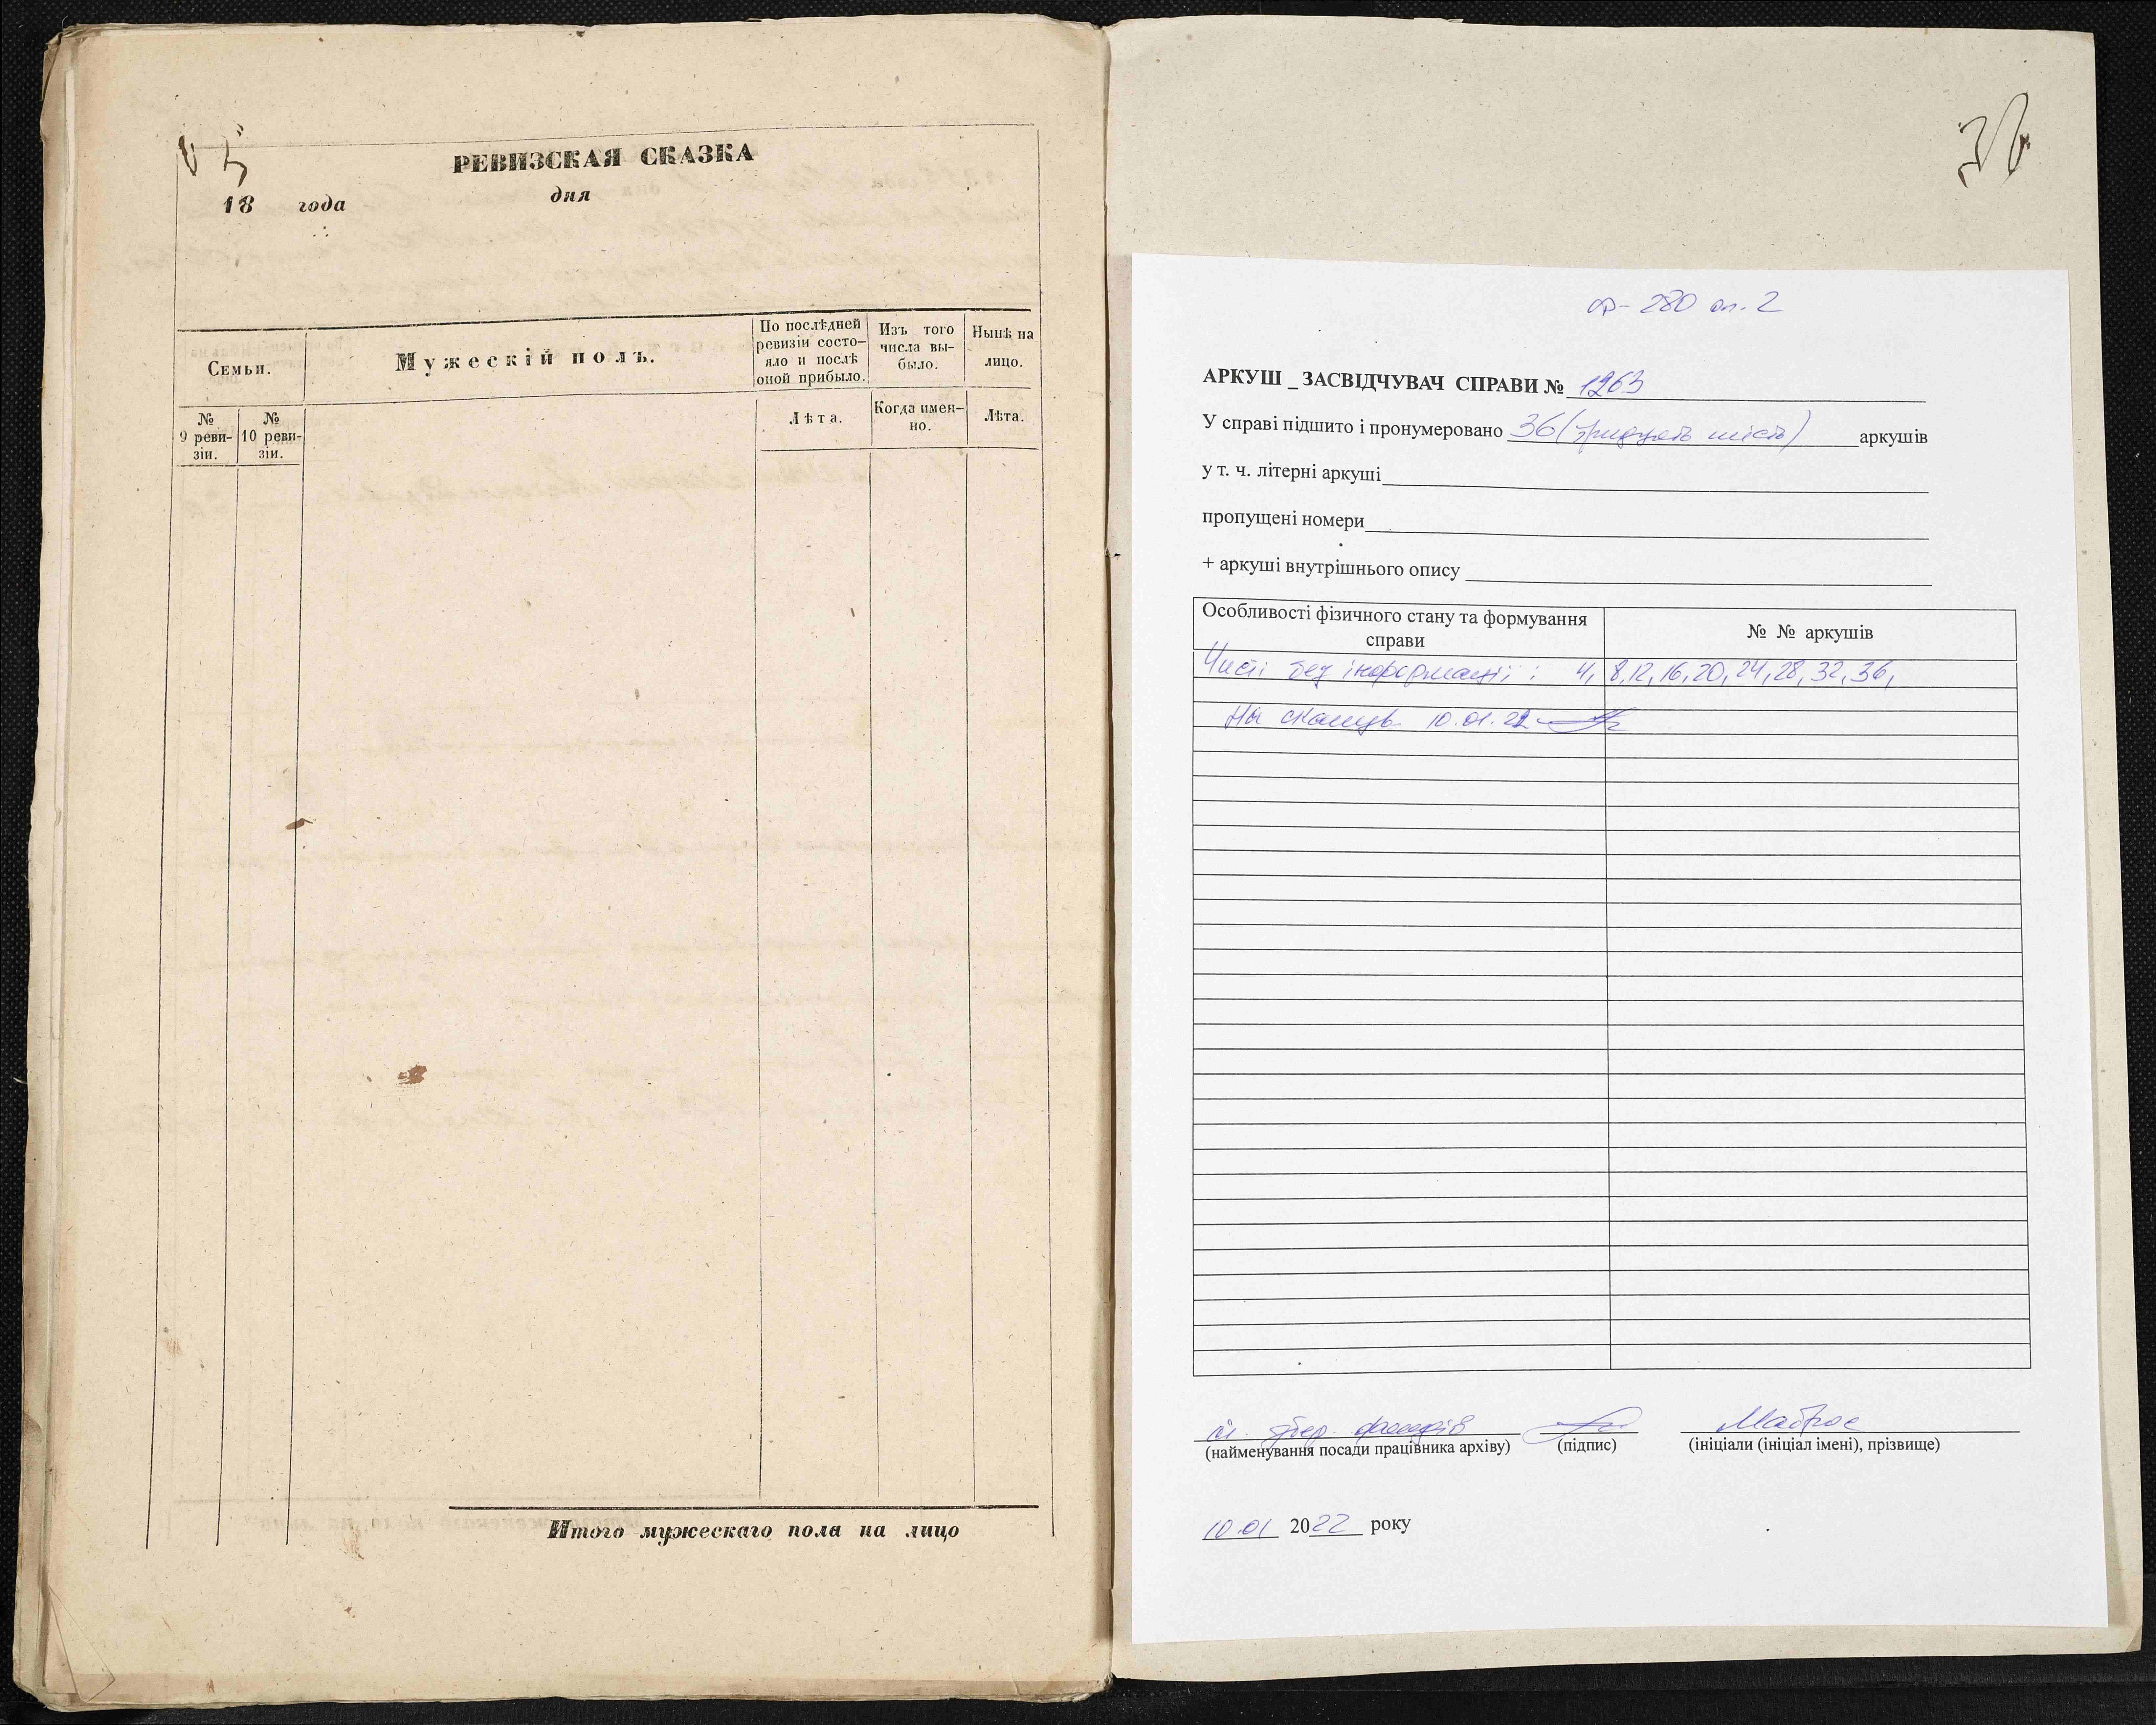 РЕВИЗСКАЯ СКАЗКА
18 года дня
Семьи.
Мужескій полъ.
По послѣдней ревизіи состояло и послѣ оной прибыло.
Изъ того числа выбыло.
Нынѣ на лицо.
№ 9 ревизіи.
№ 10 ревизіи.
Лѣта.
Когда именно.
Лѣта.
Итого мужескаго пола на лицо
36
ф-280 оп. 2
АРКУШ _ ЗАСВІДЧУВАЧ СПРАВИ № 1263
У справі підшито і пронумеровано 36 (тридцять шість) аркушів
у т. ч. літерні аркуші
пропущені номери
+ аркуші внутрішнього опису
Особливості фізичного стану та формування справи
№ № аркушів
Чисті без інформації: 4, 8, 12, 16, 20, 24, 28, 32, 36,
На 10.01.22
фондів
(найменування посади працівника архіву) (підпис) (ініціали (ініціал імені), прізвище)
10.01 2022 року